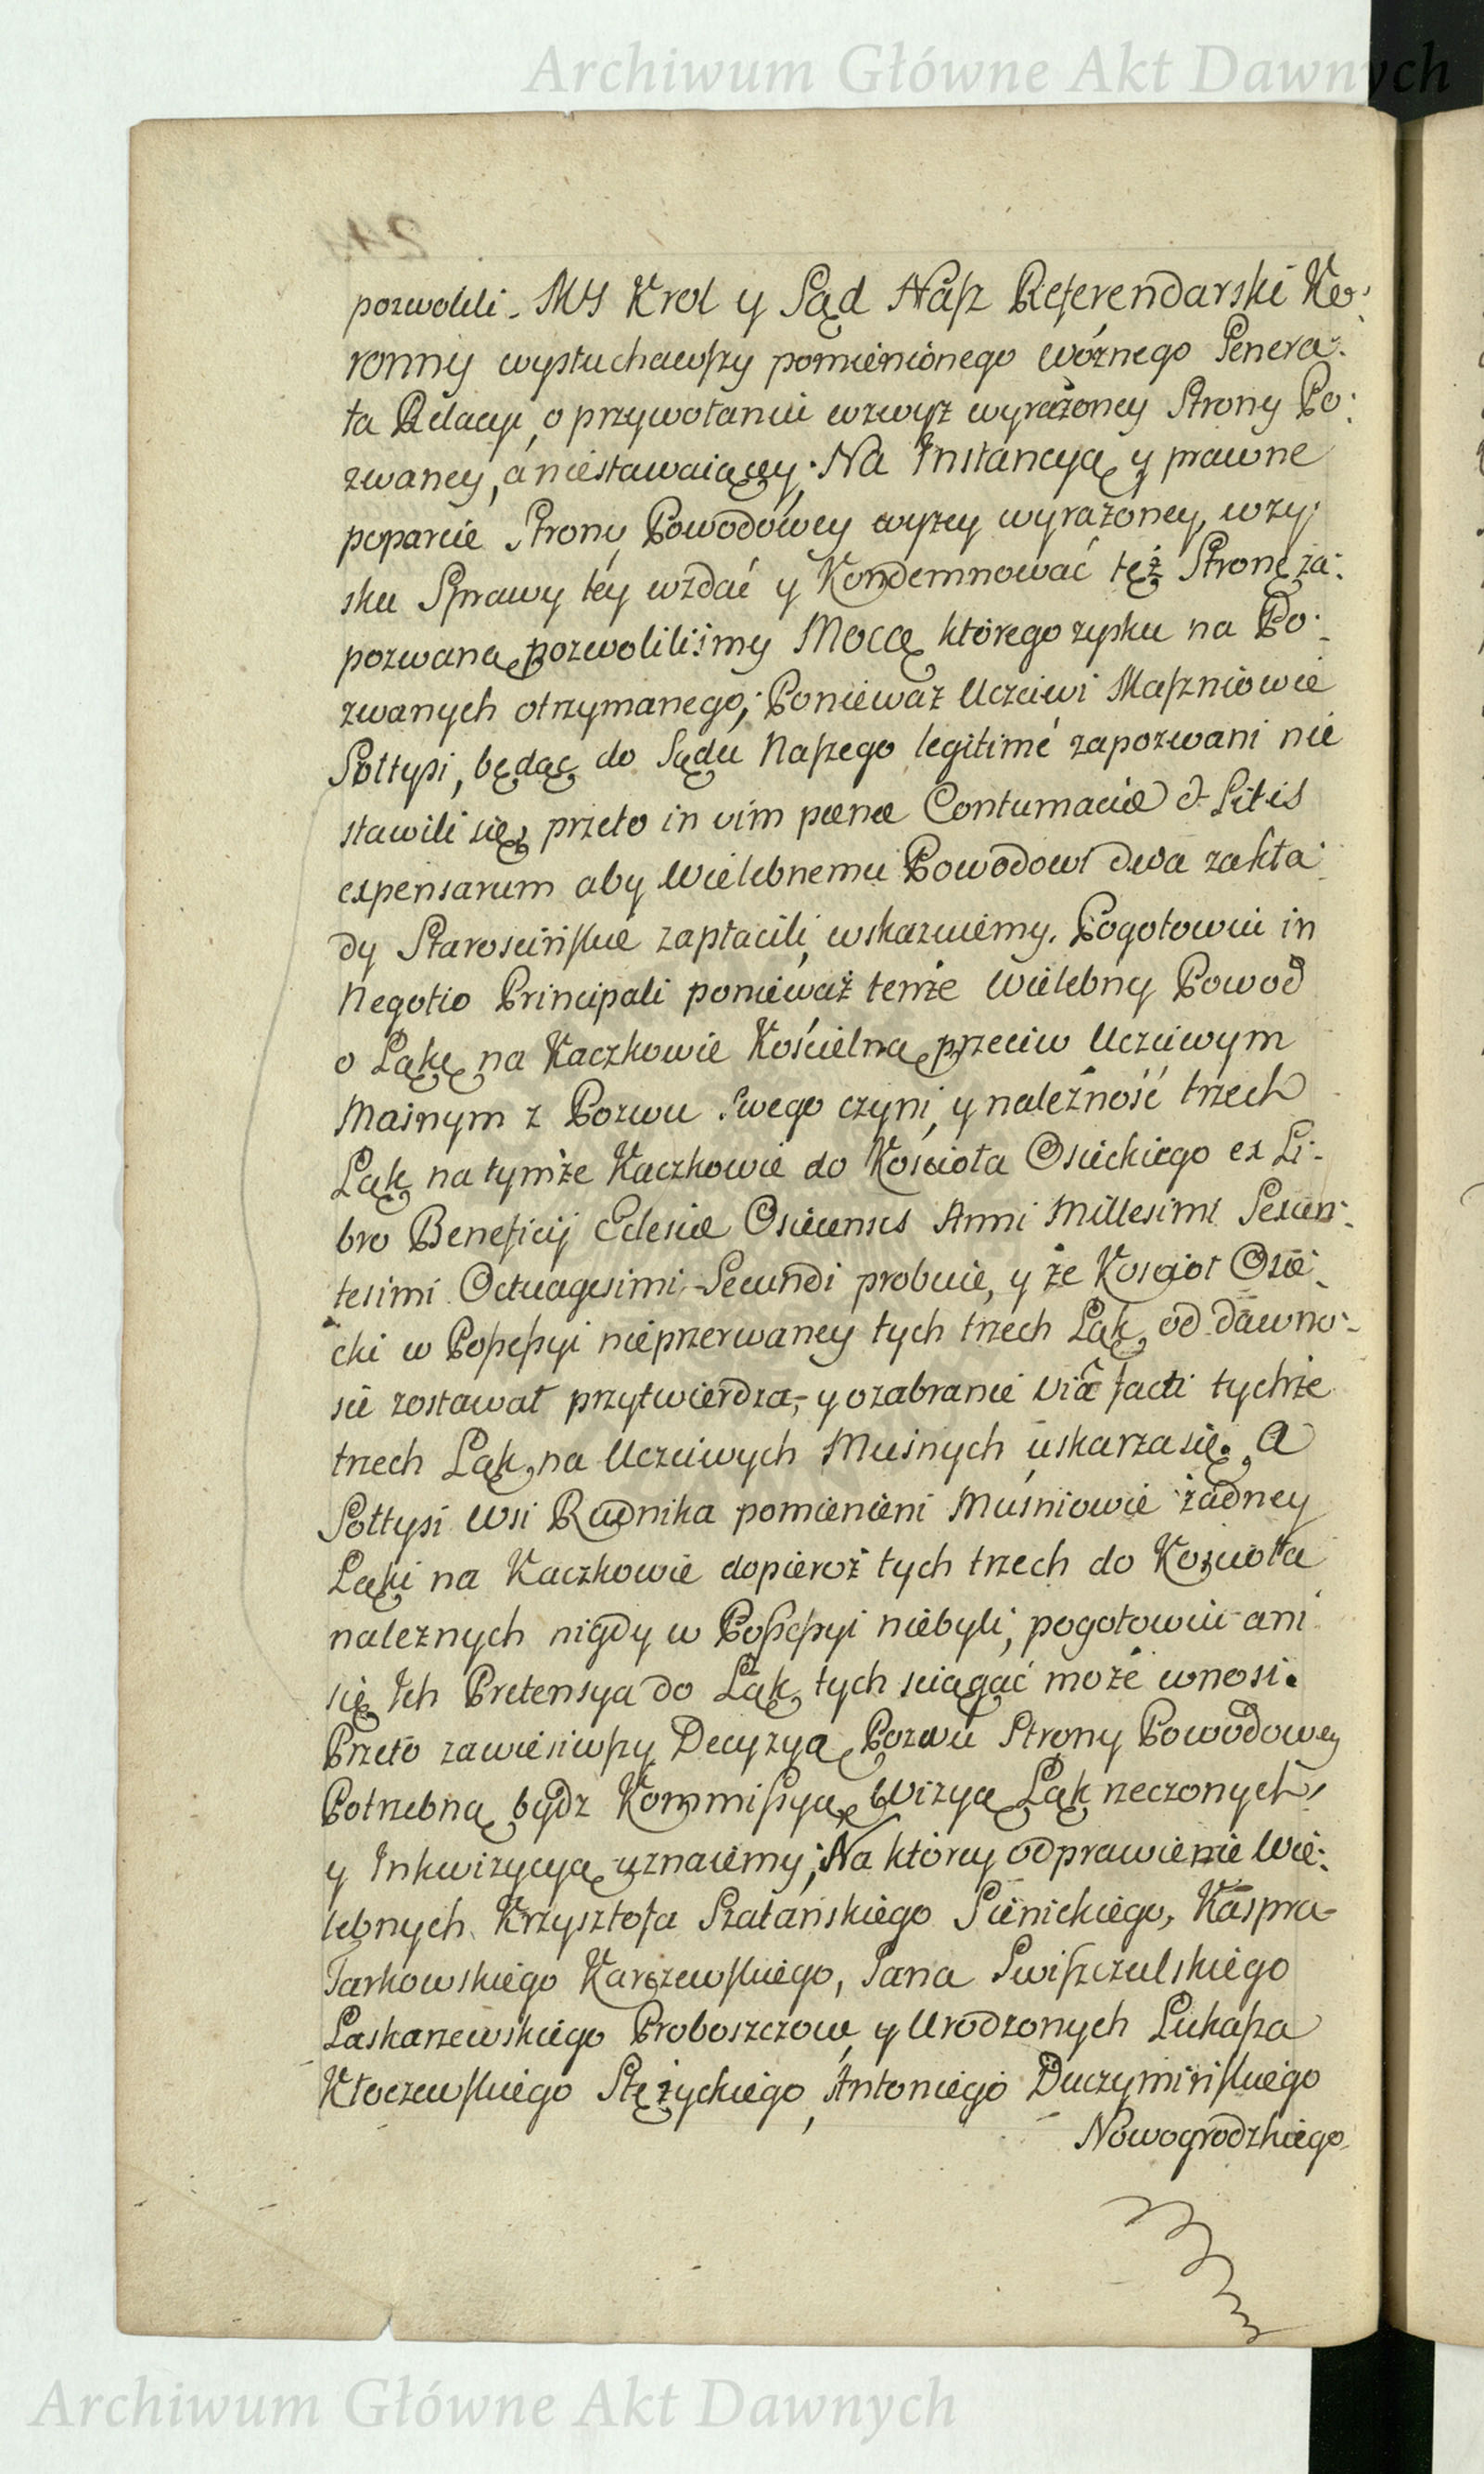 Archiwum Główne Akt Dawnych
pozwolili. MY Krol y Sąd Nasz Referendarski Ko-
ronny wysłuchawszy pomienionego woźnego Genera-
ła Relacyi, o przywołaniu wzwyż wyrażoney Strony Po-
zwaney, a niestawaiącey. Na Instancyą y prawne
poparcie Strony Powodowey wyżey wyrażoney, w zy-
sku Sprawy tey wzdać y Kondemnować też Stronę za-
pozwaną pozwoliliśmy Mocą którego zysku na Po-
zwanych otrzymanego; Ponieważ Uczciwi Maszniowie
Sołtysi, będąc do Sądu Naszego legitimé zapozwani nie
stawili się, przeto in vim pænæ Contumaciæ & Litis
expensarum aby Wielebnemu Powodowi dwa zakła-
dy Starościńskie zapłacili, wskazuiemy. Pogotowiu in
Negotio Principali ponieważ tenże Wielebny Powod
o Łąkę na Kaczkowie Kościelną przeciw Uczciwym
Maśnym z Pozwu Swego czyni, y należność trzech
Łąk na tymże Kaczkowie do Kościoła Osieckiego ex Li-
bro Beneficij Eclesiæ Osiecensis Anni Millesimi Sexcen-
tesimi Octuagesimi Secundi probuie, y że Kościoł Osie-
cki w Possessyi nieprzerwaney tych trzech Łąk od dawno-
sci zostawał przytwierdza, y o zabranie viâ facti tychże
trzech Łąk, na Uczciwych Muśnych uskarza się. A
Sołtysi Wsi Rudnika pomienieni Muśniowie żadney
Łąki na Kaczkowie dopieroż tych trzech do Kościoła
należnych nigdy w Possessyi niebyli, pogotowiu ani
się Ich Pretensya do Łąk tych sciągać może wnosi.
Przeto zawiesiwszy Decyzyą Pozwu Strony Powodowey
Potrzebną bydz Kommissyą, Wizyą Łąk rzeczonych,
y Inkwizycyą uznaiemy; Na którey odprawienie Wie-
lebnych Krzysztofa Szałańskiego Sienickiego, Kaspra
Tarkowskiego Karczewskiego, Jana Swiszczulskiego
Łaskarzewskiego Proboszczow, y Urodzonych Łukasza
Kłoczewskiego Stężyckiego, Antoniego Duczymińskiego
Nowogrodzkiego
Archiwum Główne Akt Dawnych